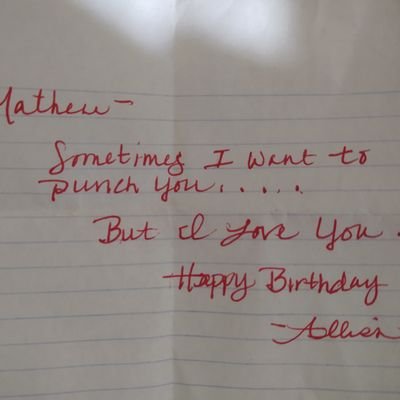 Mathew-
Sometimes I want to
punch you.....
But I Love You.
Happy Birthday
-Allison